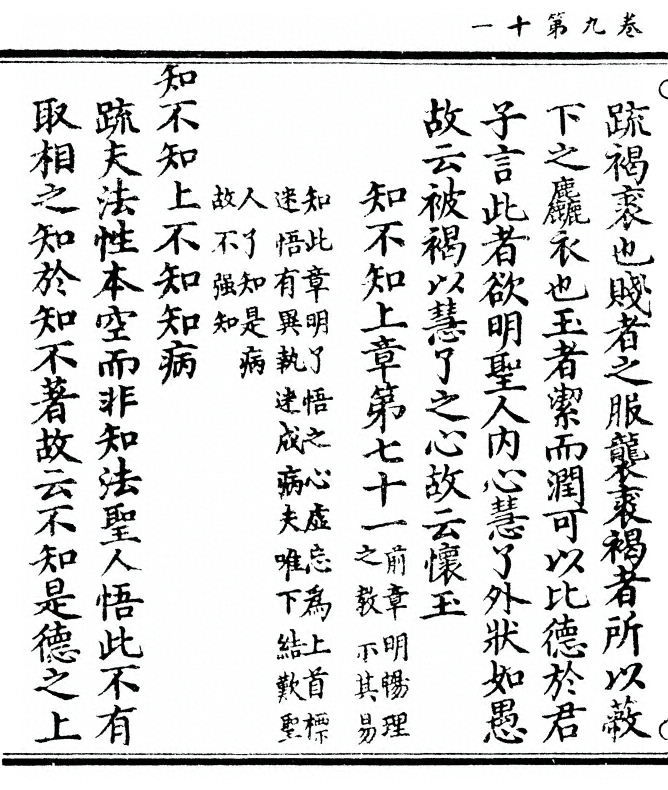 卷九第十一
疏褐裘也賤者之服襲裘褐者所以蔽
下之麤衣也玉者潔而潤可以比德於君
子言此者欲明聖人内心慧了外狀如愚
故云被褐以慧了之心故云懷玉
知不知上章第七十一前章明暢理
之教示其易
知此章明了悟之心虛忘為上首標
迷悟有異執迷成病夫唯下結歎聖
人了知是病
故不强知
知不知上不知知病
疏夫法性本空而非知法聖人悟此不有
取相之知於知不著故云不知是德之上